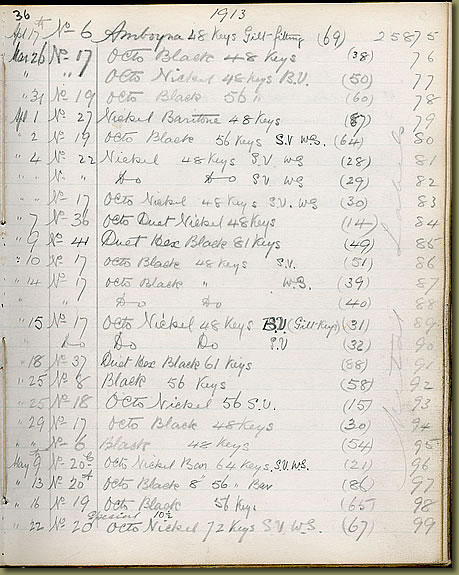 36 1913
Apl 17th No 6 Amboyna 48 Keys Gilt fitting (69) 25875
Mar 26 No 17 Octo Black 48 Keys (38) 76
" " Octo Nickel 48 Keys B.V. (50) 77
" 31 No 19 Octo Black 56 " (60) 78
Apl 1 No 27 Nickel Baritone 48 Keys (87) 79
" 2 No 19 Octo Black 56 Keys S.V W.S. (64) 80
" 4 No 22 Nickel 48 Keys S.V WS (28) 81
" No " Do Do S.V WS (29) 82
" No 17 Octo Nickel 48 Keys S.V. WS (30) 83
" 7 No 36 Octo Duet Nickel 48 Keys (14) 84
" 9 No 41 Duet Hex Black 81 Keys (49) 85
" 10 No 17 Octo Black 48 Keys S.V. (51) 86
" 14 No 17 Octo Black " W.S. (39) 87
" " " Do Do (40) 88
" 15 No 17 Octo Nickel 48 Keys S.V (Gilt Keys) (31) 89
" Do Do Do S.V (32) 90
" 18 No 37 Duet Hex Black 61 Keys (88) 91
" 25 No 8 Black 56 Keys (58) 92
" 25 No 18 Octo Nickel 56 S.V. (15) 93
" 29 No 17 Octo Black 48 Keys (30) 94
" " No 6 Black 48 Keys (54) 95
May 9 No 20 Octo Nickel Bar 64 Keys S.V. WS (21) 96
" 13 No 20 Octo Black 8" 56 " Bar (86) 97
" 16 No 19 Octo Black 56 Keys (65) 98
special 10½
" 22 No 20 Octo Nickel 72 Keys S.V. W.S. (67) 99